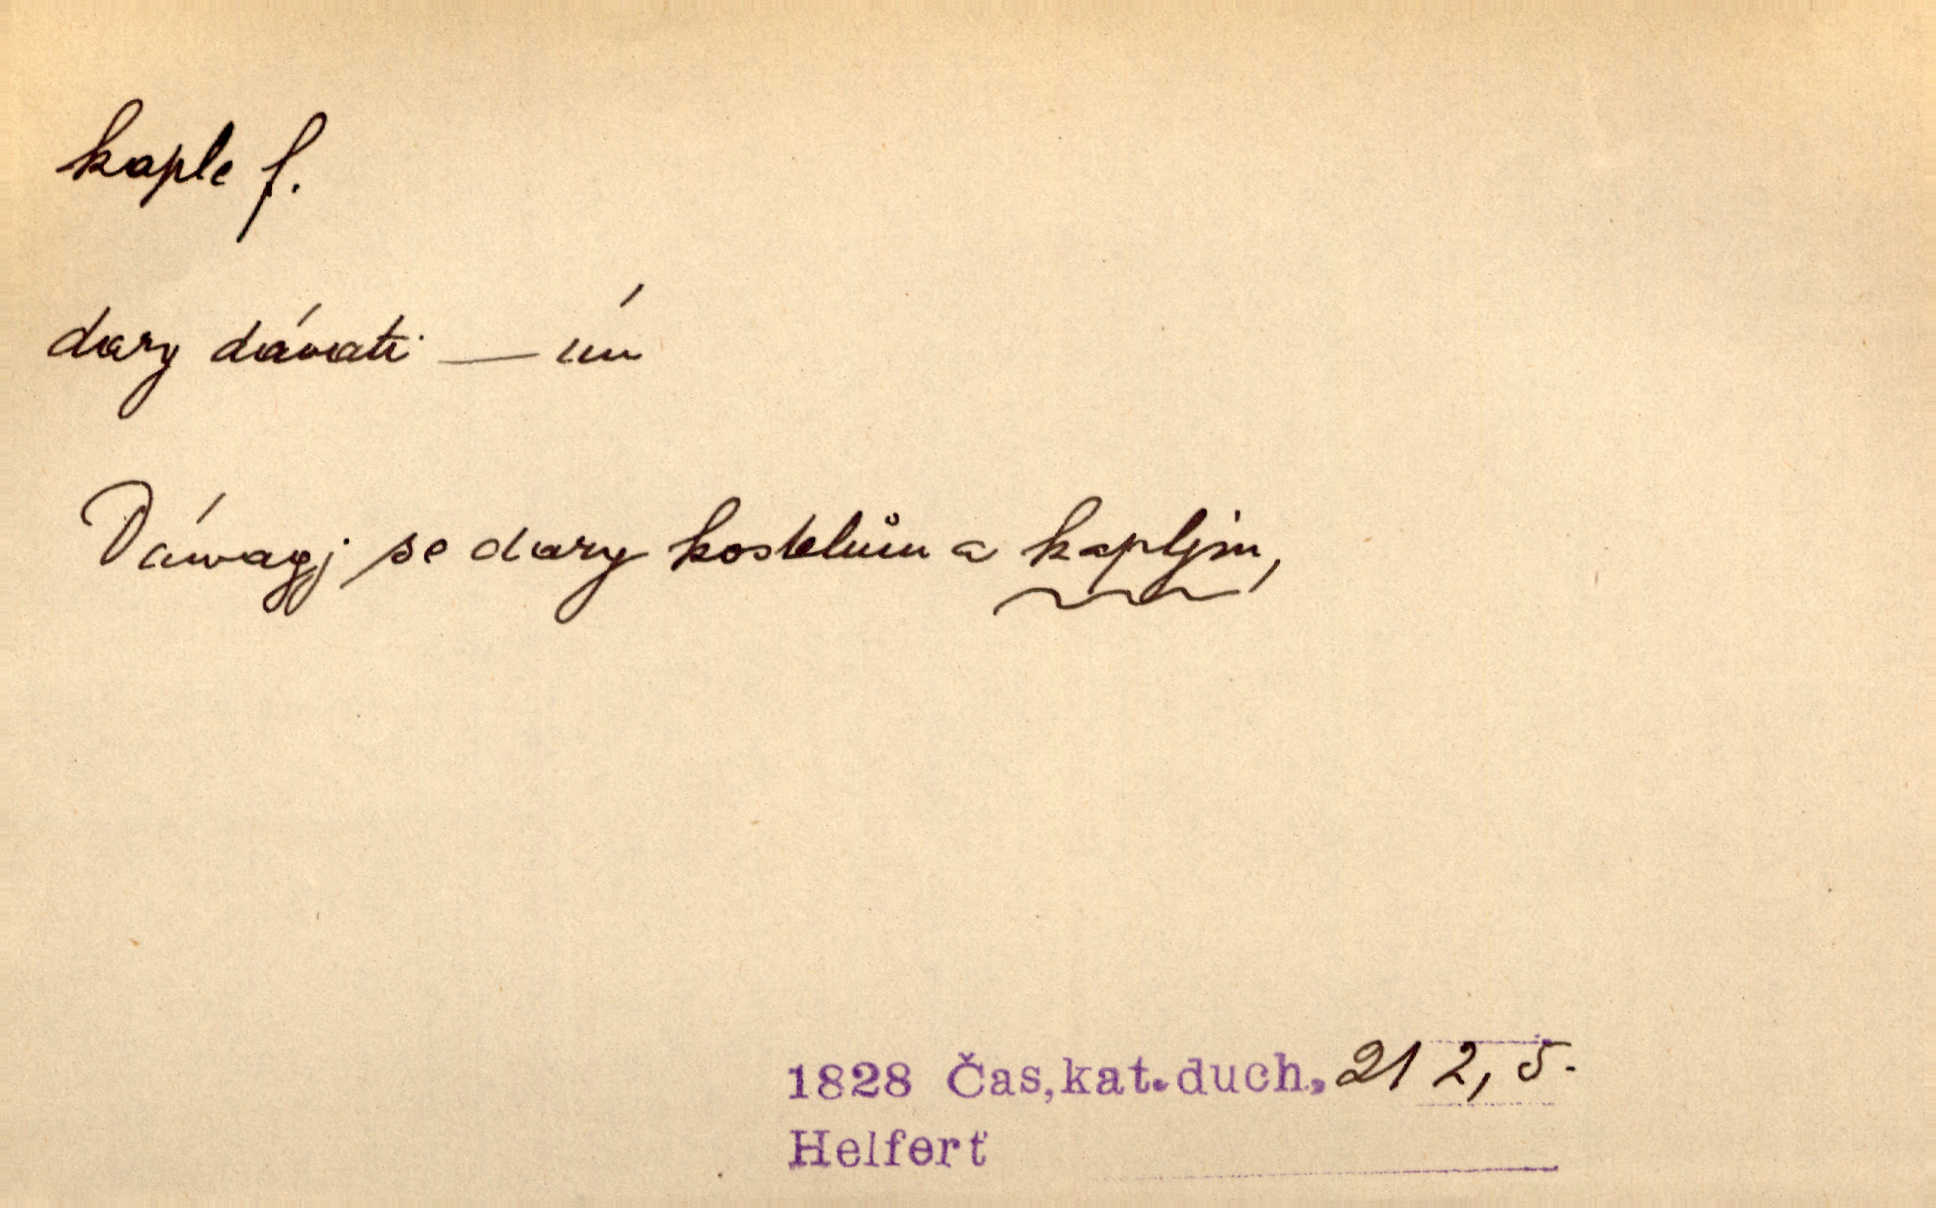 kaple f.
dary dávati — ím
Dáwagj se dary kostelům a kapljm,
1828 Čas,kat.duch, 21 2, 5.
Helfert